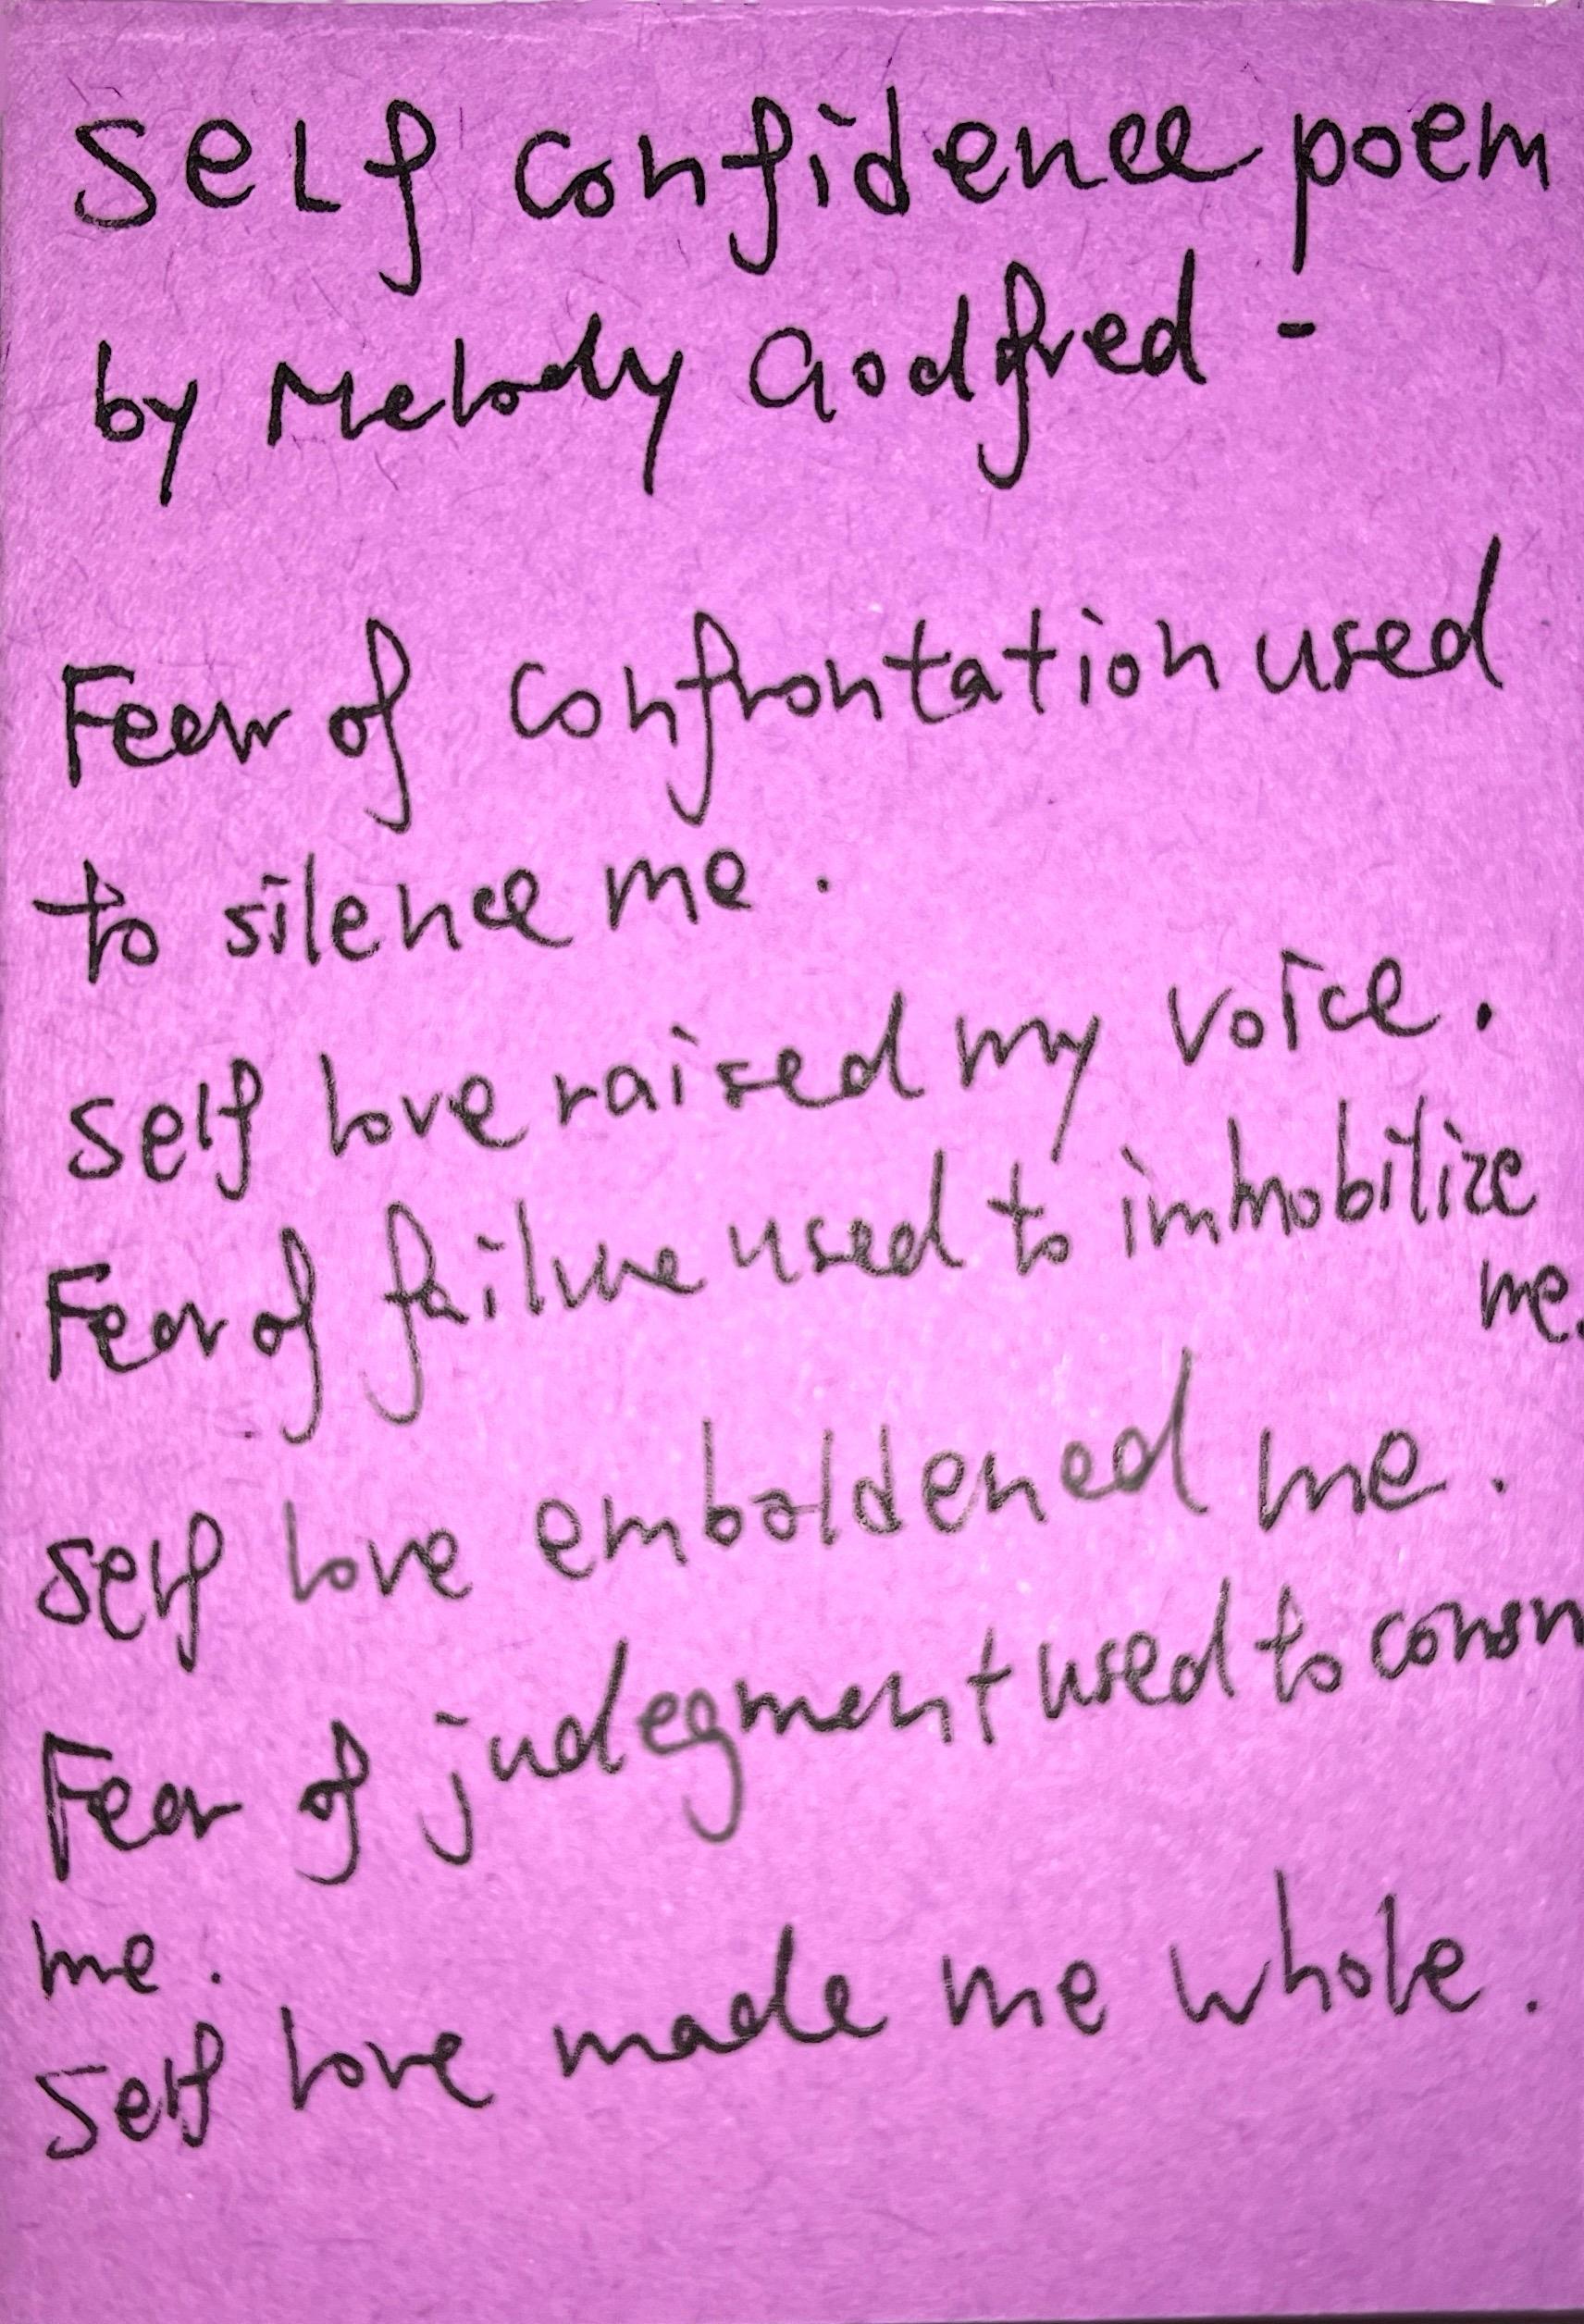 Self confidence poem
by Melody Godfred -
Fear of confrontation used
to silence me.
Self love raised my voice.
Fear of failure used to immobilize
me.
Self love emboldened me.
Fear of judegment used to consu
me.
Self love made me whole.